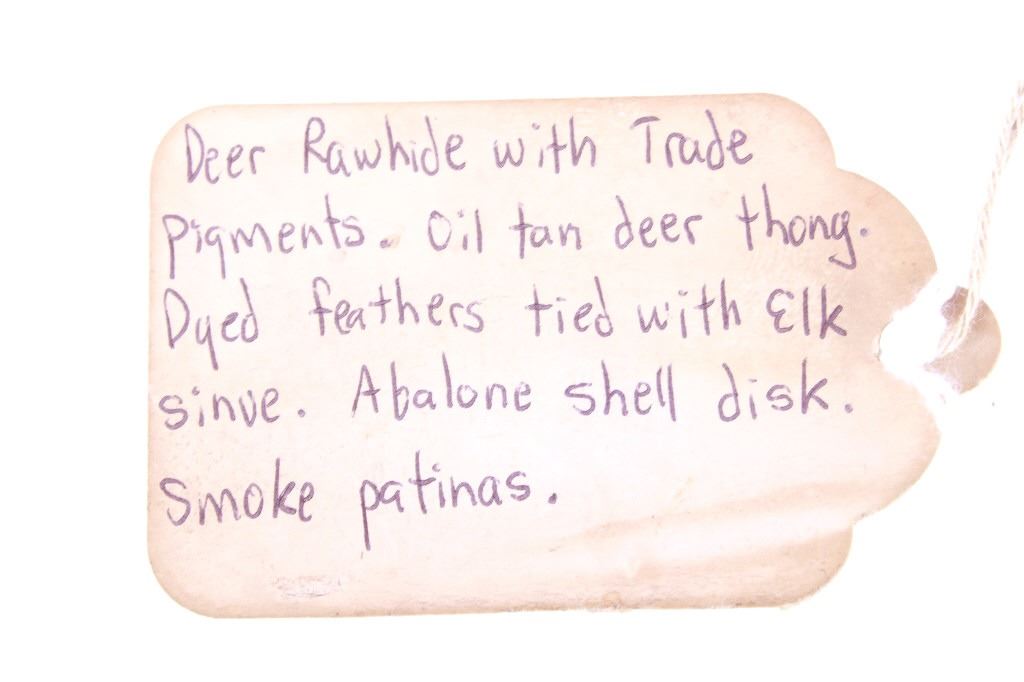 Deer Rawhide with Trade
Pigments. Oil tan deer thong.
Dyed feathers tied with Elk
sinue. Abalone shell disk.
Smoke patinas.